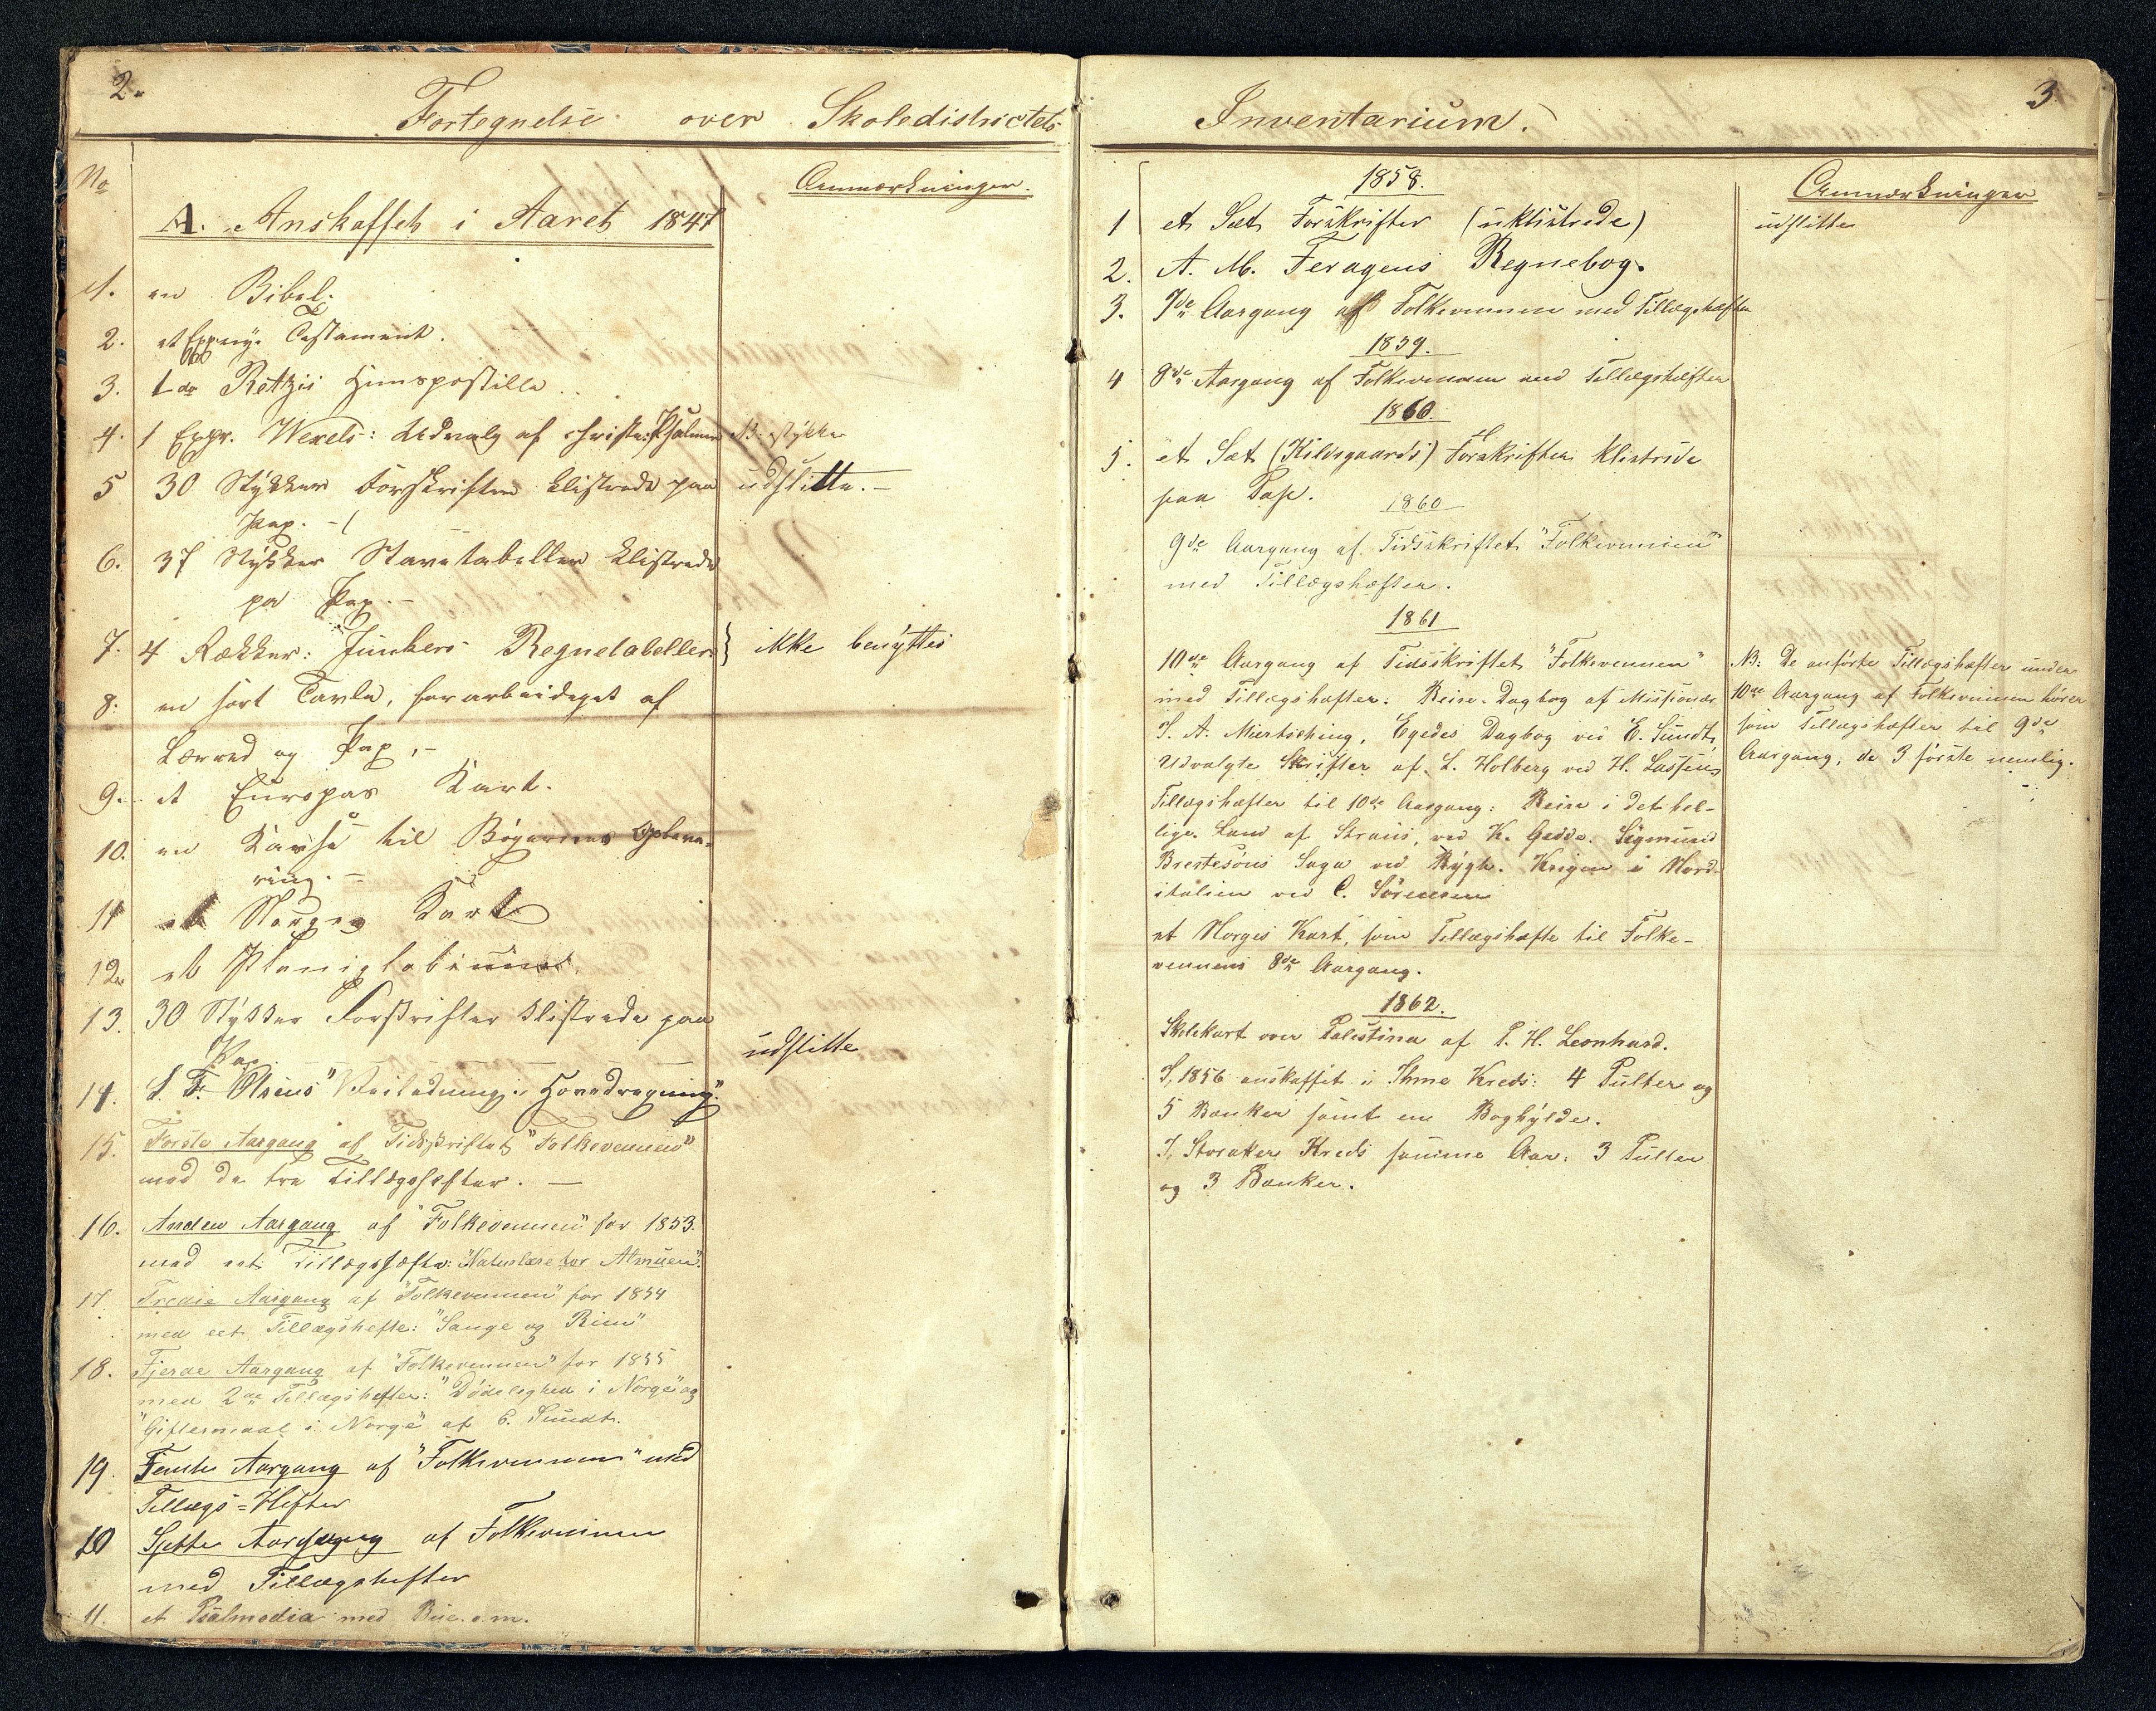 2.
Fortegnelse over Skoledistrictets
No
Anmærkninger.
A. Anskaffet i Aaret 1841
1. en Bibel.
2. et Expl. nye Testament.
3. 1 do Rettzii Huuspostille
4. 1 Expr. Wexels: Udvalg af christe: Psalmer NB. stykke
5 30 Stykker Forskrifter klistrede paa udslitte.-
Pap. -
6. 37 Stykker Stavetabeller klistrede
pa Pap. -
7. 4 Rækker: Junkers Regnetabeller } ikke benyttes
8. en sort Tavle, forarbeidet af
Lærred og Pap. -
9. et Europas Kart.
10. en Kasse til Bøgernes Opbeva-
ring. -
11 et Norges Kart
12. et Planiglobium
13. 30 Stykker Forskrifter klistrede paa
Pap. udslitte
14. Ursins "Veiledning i Hovedregning".
15. Første Aargang af Tidsskriftet "Folkevennen"
med de tre Tillægshefter. -
16. Anden Aargang af "Folkevennen" for 1853.
med eet Tillægshefte: "Naturlære for Almuen".
17. Tredie Aargang af "Folkevennen" for 1854
med eet Tillægshefte: "Sange og Rim"
18. Fjerde Aargang af "Folkevennen" for 1855
med 2de Tillægshefter: "Dødelighed i Norge" og
"Giftermaal i Norge" af E. Sundt.
19. Femte Aargang af "Folkevennen" med
Tillægs-Hefter
20 Sjette Aargang af Folkevennen
med Tillægshefter
11. et Psalmodia med Bue. o. m.
3
Inventarium.
1858.
Anmærkninger
1 et Sæt Forskrifter (uklistrede) udslitte
2. A. M. Feragens Regnebog.
3. 7de Aargang af Folkevennen med Tillægshefter
1859.
4 8de Aargang af Folkevennen med Tillægshefter
1860.
5. et Sæt (Kildsgaards) Forskrifter klistrede
paa Pap.
1860
9de Aargang af Tidsskriftet "Folkevennen"
med Tillægshefter.
1861
10de Aargang af Tidsskriftet "Folkevennen"
med Tillægshefter: Reise-Dagbog af Missionær
J. A. Miertsching, Egedes Dagbog ved E. Sundt,
Udvalgte Skrifter af L. Holberg ved H. Lassen,
Tillægshefter til 10de Aargang: Reise i det hel-
lige Land af Strauss, ved K. Gedde. Sigmund
Brestesøns Saga ved Rygh. Krigen i Nord-
italien ved C. Sørensen
et Norges Kart, som Tillægshefte til Folke-
vennens 8de Aargang.
NB: De anførte Tillægshefter under
10de Aargang af Folkevennen hører
som Tillægshefter til 9de
Aargang, de 3 første nemlig.
1862.
Skolekart over Palestina af P. H. Leonhard.
I 1856 anskaffet i Ihme Kreds: 4 Pulter og
5 Bænker samt en Boghylde.
I Storaker Kreds samme Aar: 3 Pulter
og 3 Bænker.